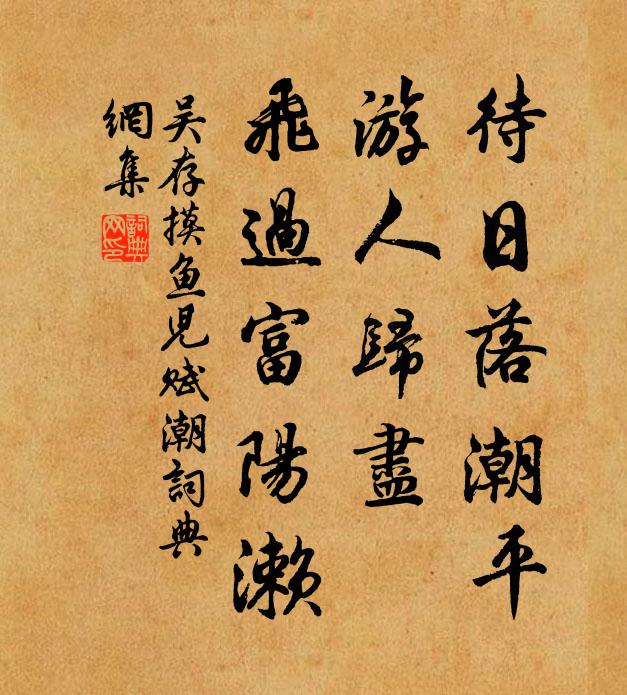 待日落潮平
游人歸盡
飛過富陽瀨
吴存摸鱼児赋潮詞典
網集
詞典网印